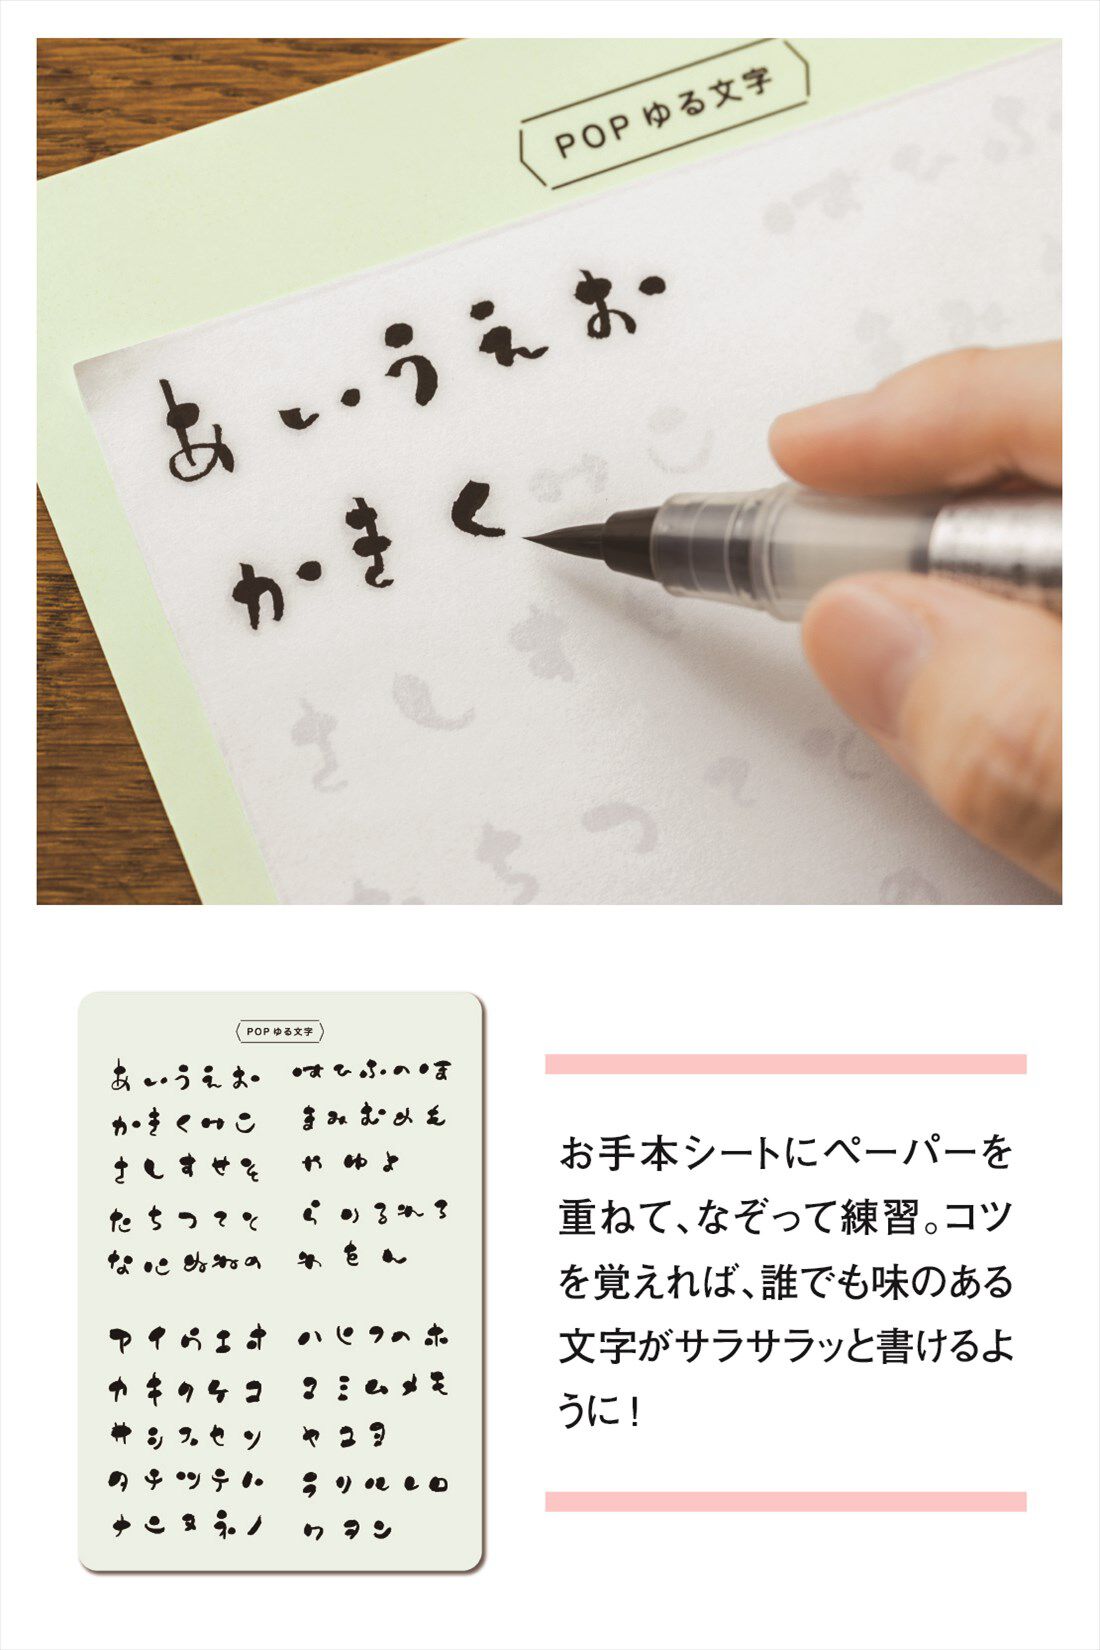 POP ゆる文字
あいうえお
かきく
さし
ちつ
POP ゆる文字
あいうえお
かきくけこ
さしすせそ
たちつてと
なにぬねの
はひふへほ
まみむめも
やゆよ
らりるれろ
わをん
アイウエオ
カキクケコ
サシスセソ
タチツテト
ナニヌネノ
ハヒフヘホ
マミムメモ
ヤユヨ
ラリルレロ
ワヲン
お手本シートにペーパーを
重ねて、なぞって練習。コツ
を覚えれば、誰でも味のある
文字がサラサラッと書けるよ
うに！